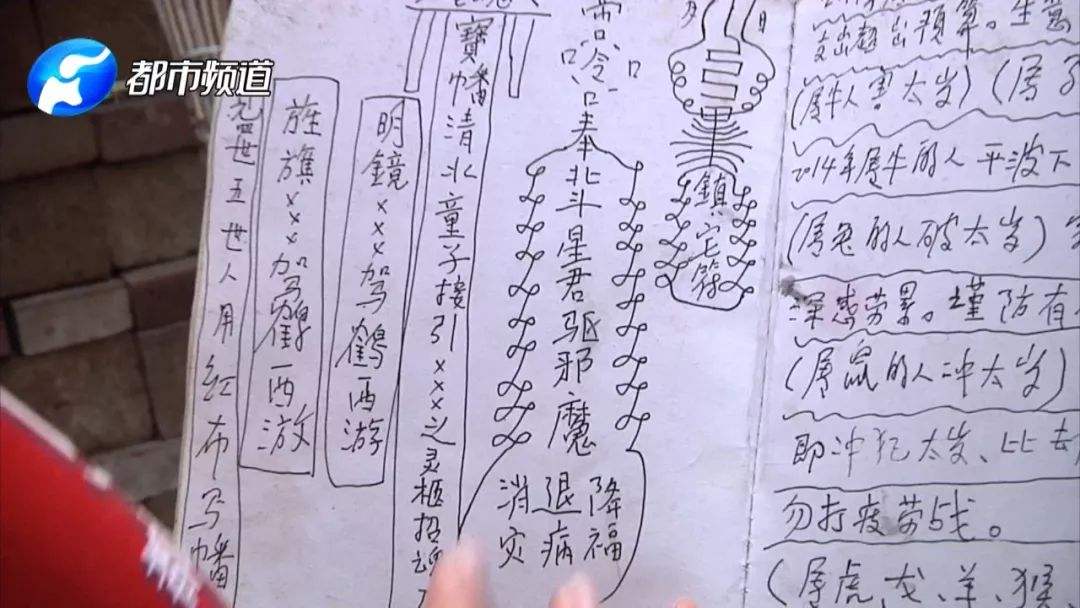 都市频道
世五世人用红布写幡
旌旗×××驾鹤西游
明鏡×××驾鶴西游
寶幡清水童子接引×××之灵柩招
奉北斗星君驱邪魔
消退降
灾病福
鎮宅符
支出超出预算。生意
(属牛人害太岁)(属
2014年属牛的人平波下
(属兔的人破太岁)
深感劳累。谨防有
(属鼠的人冲太岁)
即冲犯太岁、比去
勿打疲劳战。
(属虎、龙、羊、猴、